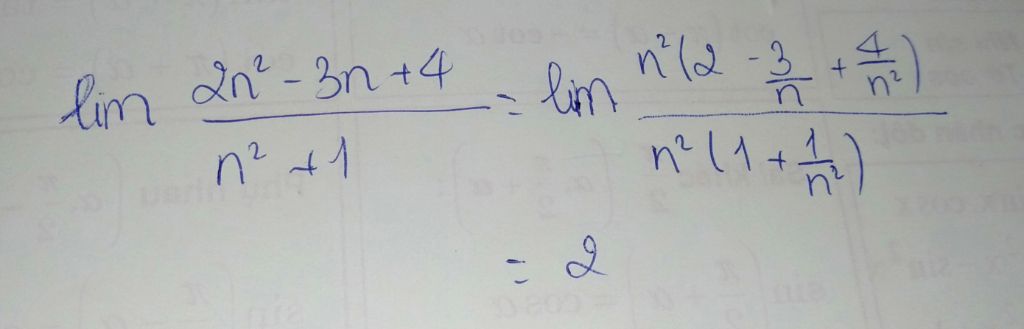 lim (2n² - 3n + 4)/(n² + 1) = lim (n²(2 - 3/n + 4/n²))/(n²(1 + 1/n²))
= 2